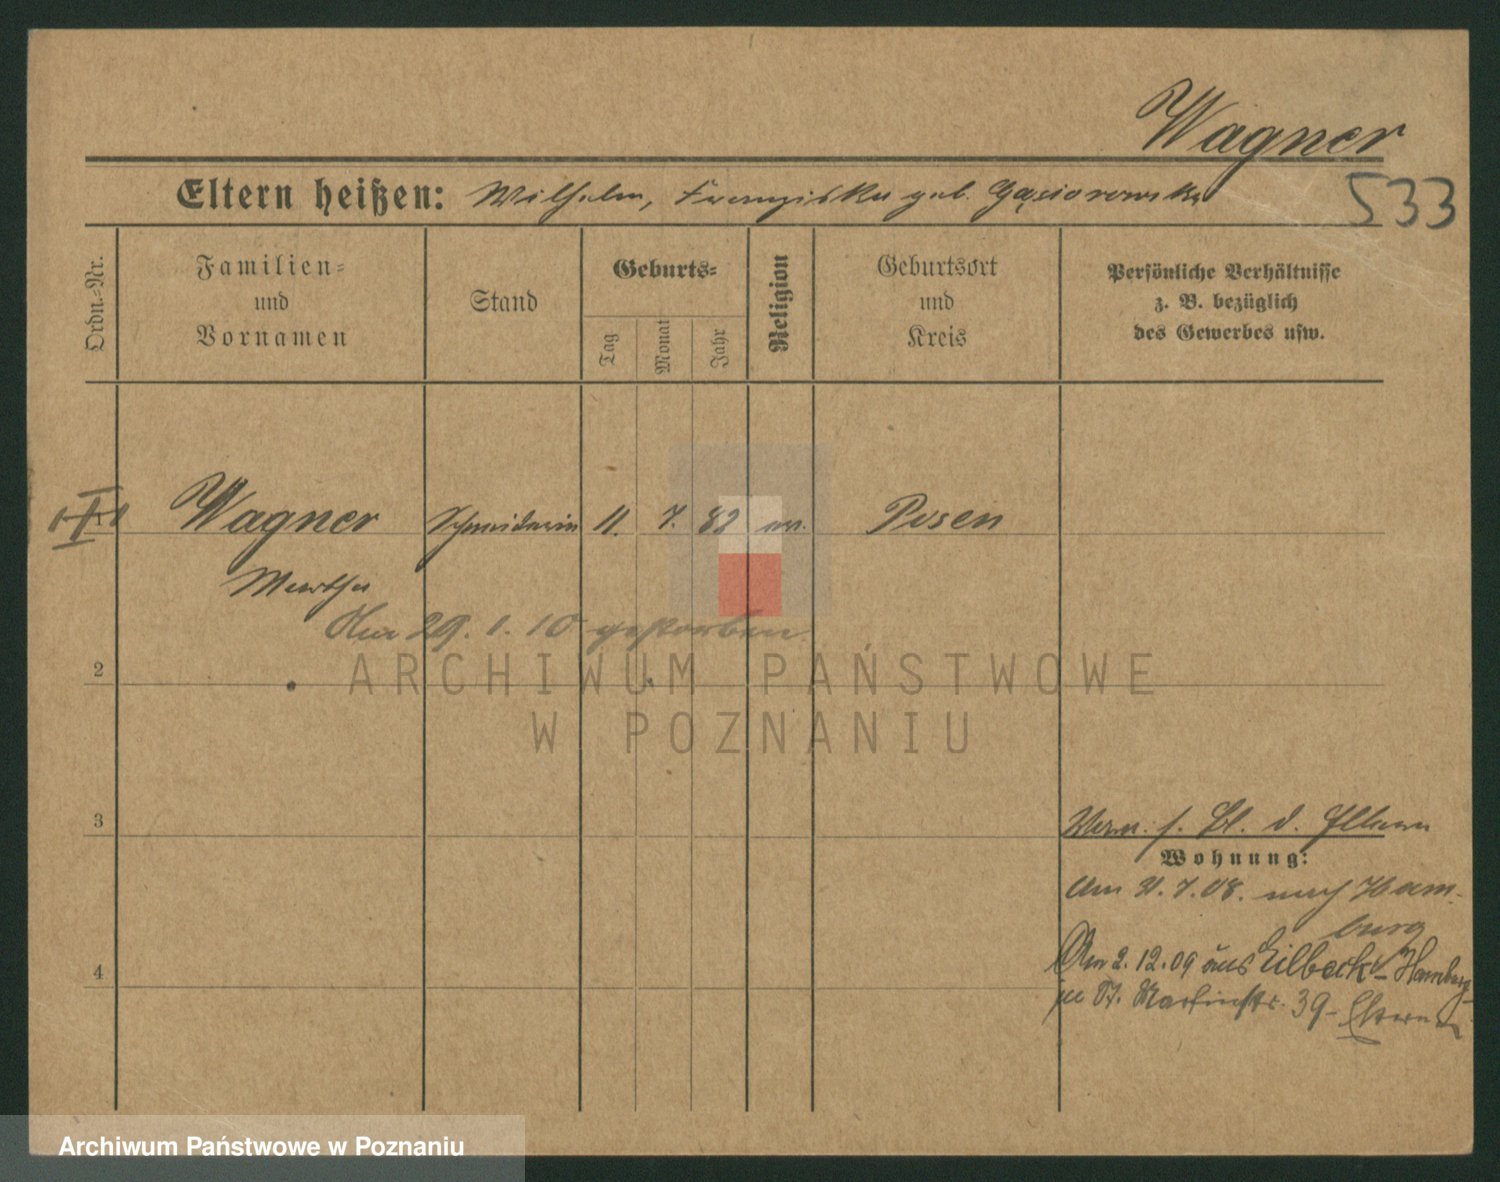 Wagner
Eltern heißen: Wilhelm, Franziska geb. Gąsiorowska
533
Ordn.-Nr.
Familien-
und
Vornamen
Stand
Geburts-
Tag
Monat
Jahr
Religion
Geburtsort
und
Kreis
Persönliche Verhältnisse
z. B. bezüglich
des Gewerbes usw.
1 Wagner Schneiderin 11. 7. 82 ev. Posen
Martha
Am 29. 1. 10 gestorben.
ARCHIWUM PAŃSTWOWE
W POZNANIU
2
3
Verm. s. Bl. d. Eltern
Wohnung:
Am 21.7.08. nach Ham-
burg
Am 2.12.09 aus Eilbeck-Hamburg
St. Martinstr. 39 - Eltern
4
Archiwum Państwowe w Poznaniu